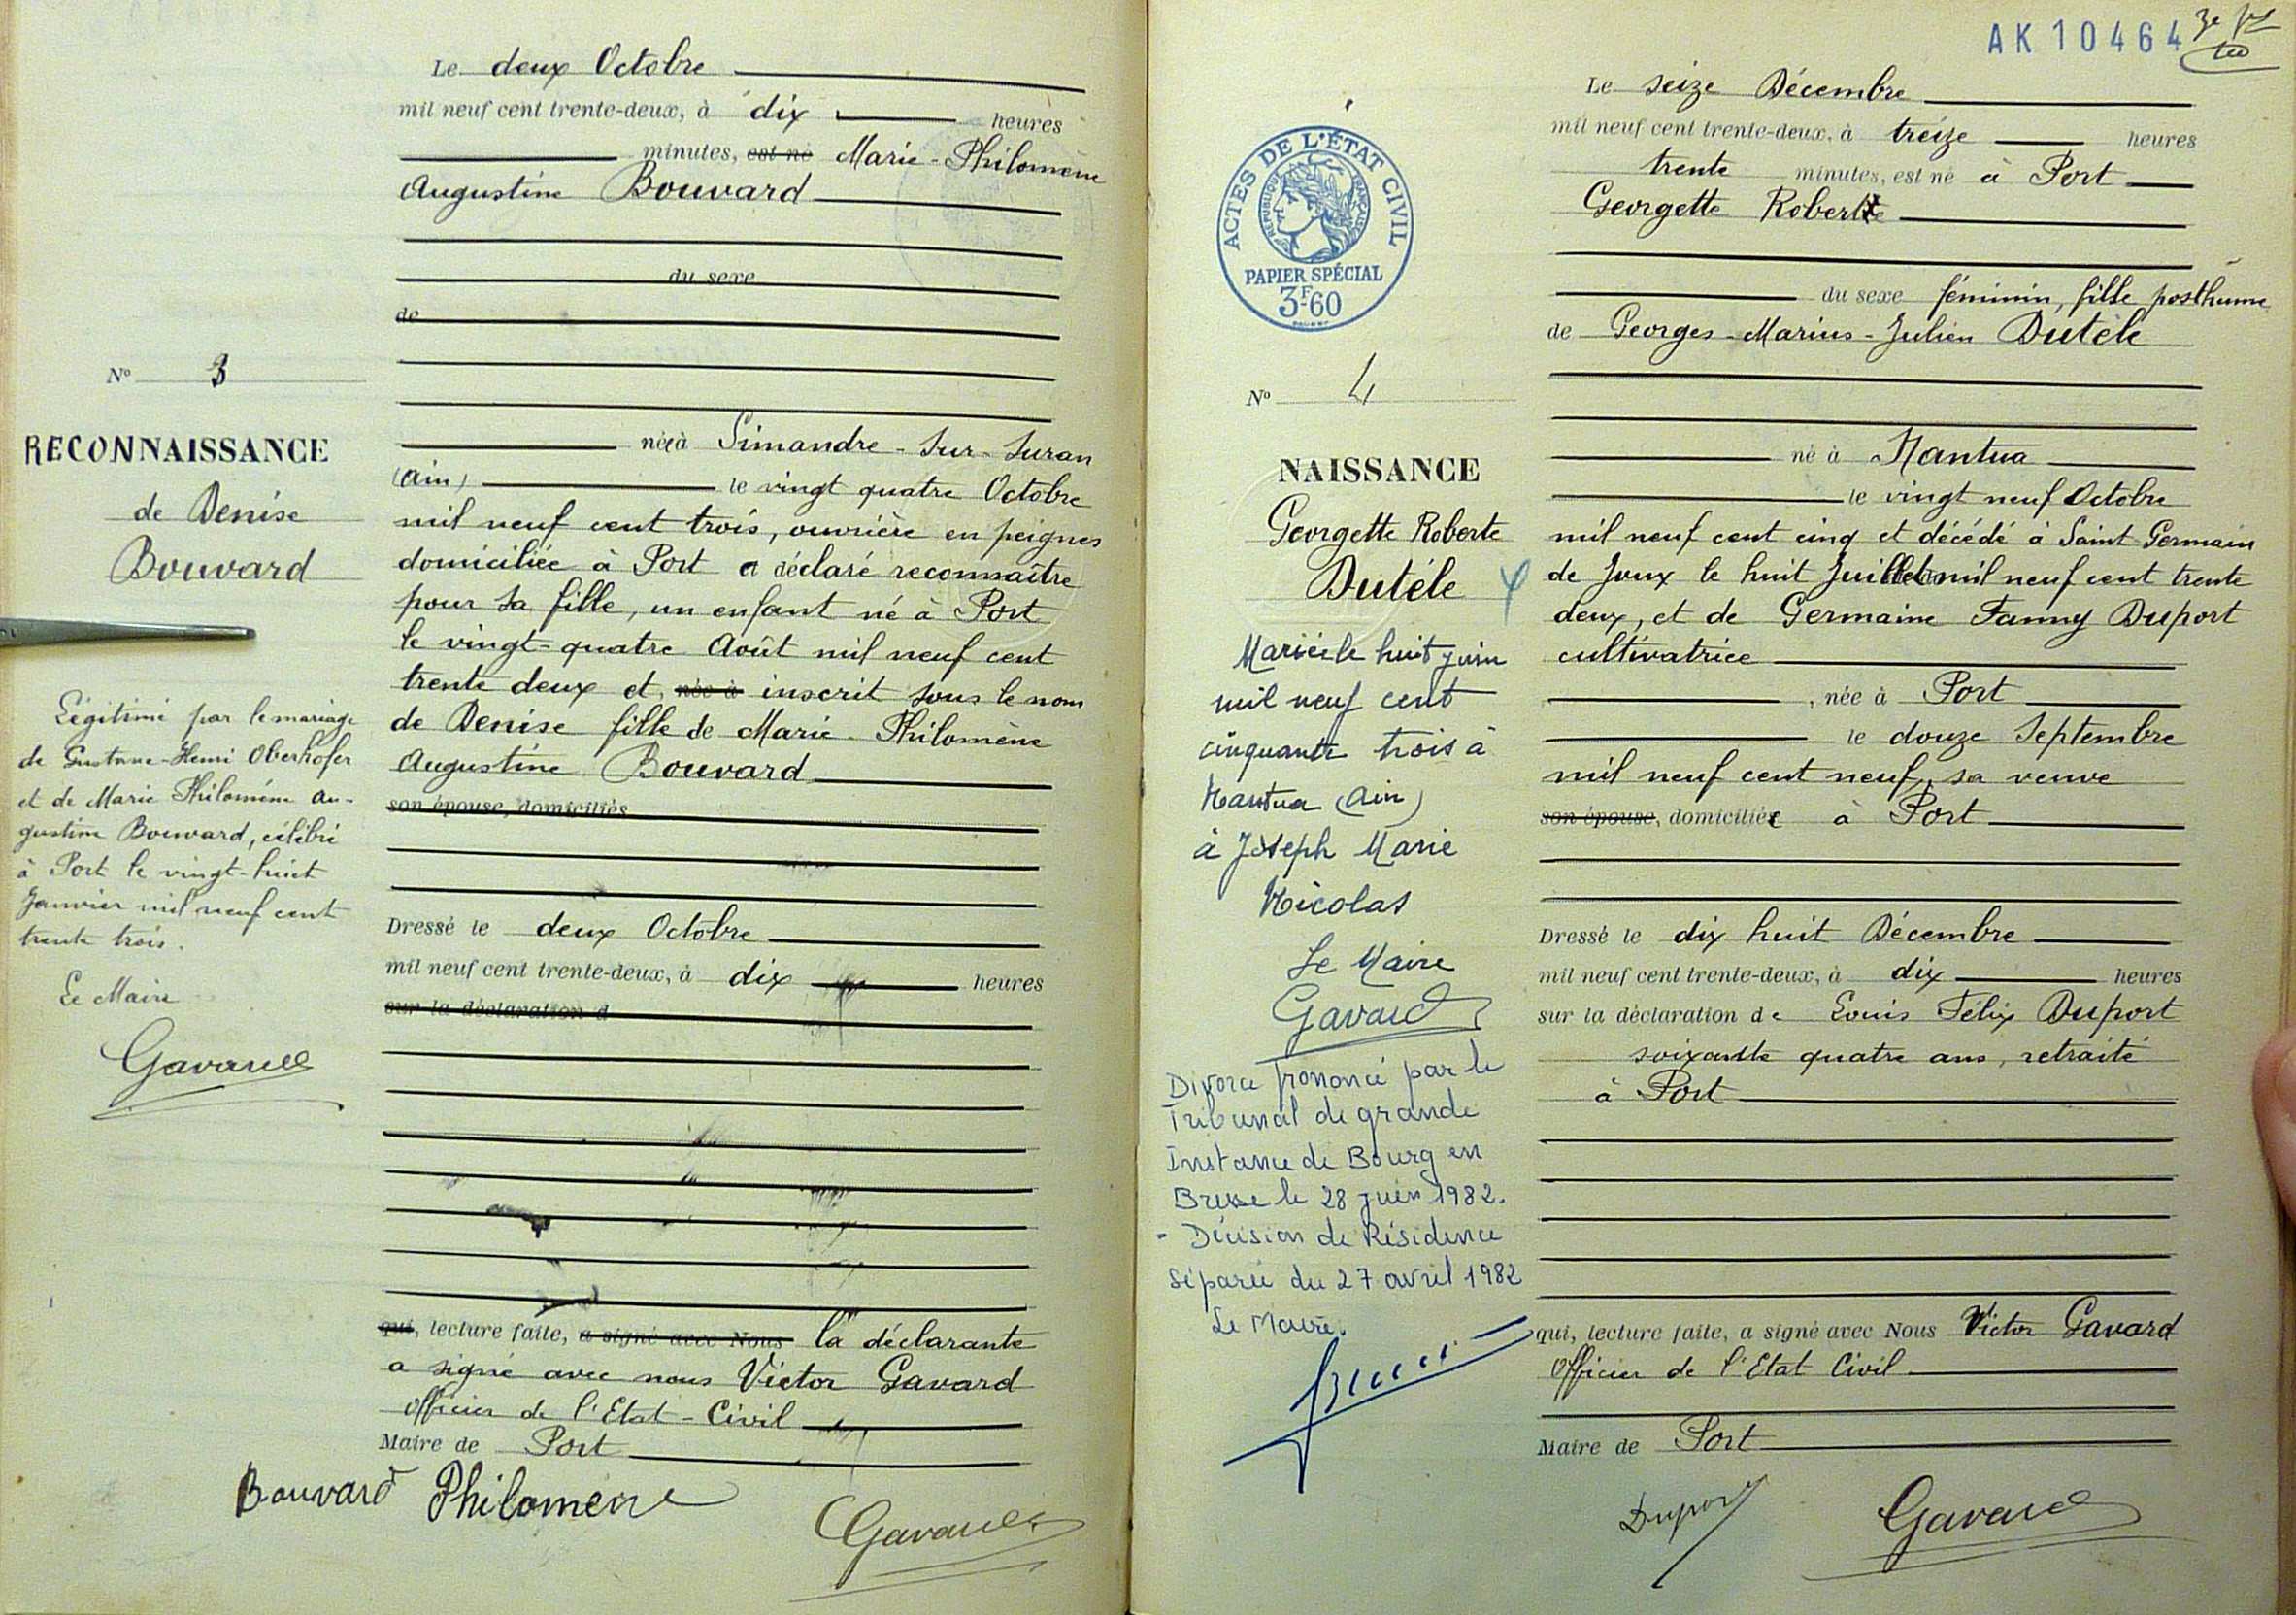 Le deux Octobre
mil neuf cent trente-deux, à dix heures
minutes, est né Marie-Philomène
Augustine Bouvard
du sexe
de
N° 3
RECONNAISSANCE
de Denise
Bouvard
Légitimé par le mariage
de Gustave-Henri Oberhofer
et de Marie Philomène Au-
gustine Bouvard, célébré
à Port le vingt-huit
Janvier mil neuf cent
trente trois.
Le Maire
Gavard
née à Simandre-sur-Suran
(Ain) le vingt quatre Octobre
mil neuf cent trois, ouvrière en peignes
domiciliée à Port a déclaré reconnaître
pour sa fille, un enfant né à Port
le vingt-quatre Août mil neuf cent
trente deux et, née à inscrit sous le nom
de Denise fille de Marie-Philomène
Augustine Bouvard
son épouse, domiciliés
Dressé le deux Octobre
mil neuf cent trente-deux, à dix heures
sur la déclaration d
qui, lecture faite, a signé avec Nous la déclarante
a signé avec nous Victor Gavard
Officier de l'Etat-Civil
Maire de Port
Bouvard Philomène
Gavard
AK10464
ACTES DE L'ÉTAT CIVIL
RÉPUBLIQUE FRANÇAISE
PAPIER SPÉCIAL
3F60
N° 4
NAISSANCE
Georgette Roberte
Dutéle
Mariée le huit juin
mil neuf cent
cinquante trois à
Nantua (Ain)
à Joseph Marie
Nicolas
Le Maire
Gavard
Divorce prononcé par le
Tribunal de grande
Instance de Bourg en
Bresse le 28 juin 1982.
- Décision de Résidence
séparée du 27 avril 1982
Le Maire.
Le seize Décembre
mil neuf cent trente-deux, à treize heures
trente minutes, est né à Port
Georgette Roberte
du sexe féminin, fille posthume
de Georges-Marius-Julien Dutéle
né à Nantua
le vingt neuf Octobre
mil neuf cent cinq et décédé à Saint Germain
de Joux le huit Juillet mil neuf cent trente
deux, et de Germaine Fanny Duport
cultivatrice
, née à Port
le douze Septembre
mil neuf cent neuf, sa veuve
son épouse, domiciliée à Port
Dressé le dix huit Décembre
mil neuf cent trente-deux, à dix heures
sur la déclaration de Louis Félix Duport
soixante quatre ans, retraité
à Port
qui, lecture faite, a signé avec Nous Victor Gavard
Officier de l'Etat Civil
Maire de Port
Duport
Gavard